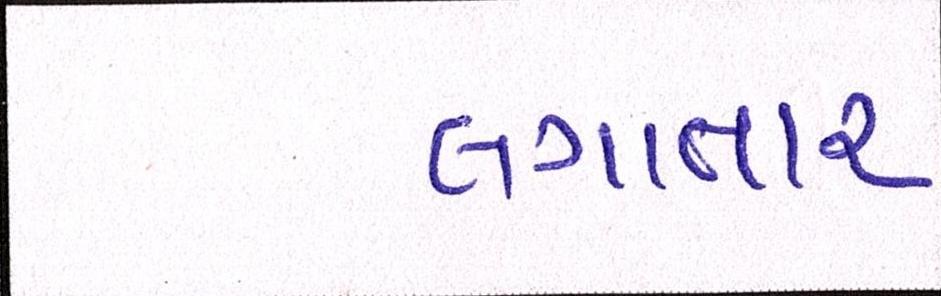 લગાતાર